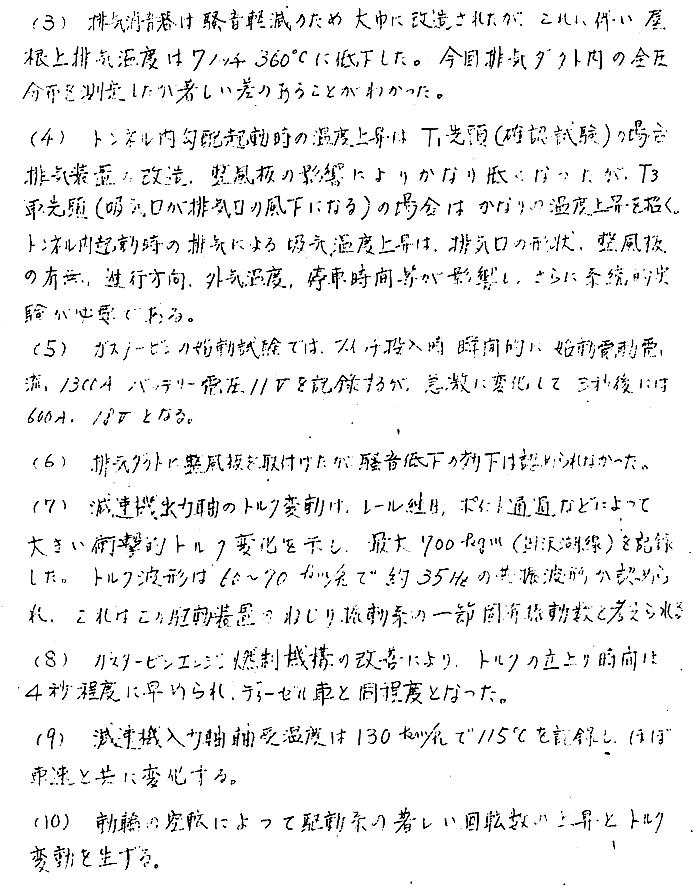 (3) 排気消音器は騒音軽減のため大巾に改造されたが、これに伴い屋
根上排気温度は7ノッチ360°Cに低下した。今回排気ダクト内の全圧
分布を測定したが著しい差のあることがわかった。
(4) トンネル内勾配起動時の温度上昇はT₁先頭(確認試験)の場合
排気装置の改造、整風板の影響によりかなり低くなったが、T3
車先頭(吸気口が排気口の風下になる)の場合はかなりの温度上昇を招く。
トンネル内起動時の排気による吸気温度上昇は、排気口の形状、整風板
の有無、進行方向、外気温度、停車時間等が影響し、さらに系統的実
験が必要である。
(5) ガスタービンの始動試験では、スイッチ投入時瞬間的に始動電動電
流、1300A バッテリー電圧11Vを記録するが、急激に変化して3秒後には
600A、18Vとなる。
(6) 排気ダクトに整風板を取付けたが騒音低下の効下は認められなかった。
(7) 減速機出力軸のトルク変動は、レール継目、ポイント通過などによって
大きい衝撃的トルク変化を示し、最大700kgm(田沢湖線)を記録
した。トルク波形は60~90km/hで約35Hzの共振波形が認めら
れ、これはこの駆動装置のねじり振動系の一節固有振動数と考えられる
(8) ガスタービンエンジン燃制機構の改善により、トルクの立上り時間は
4秒程度に早められ、ディーゼル車と同程度となった。
(9) 減速機入力軸軸受温度は130km/hで115°Cを記録し、ほぼ
車速と共に変化する。
(10) 動輪の空転によって駆動系の著しい回転数の上昇とトルク
変動を生ずる。